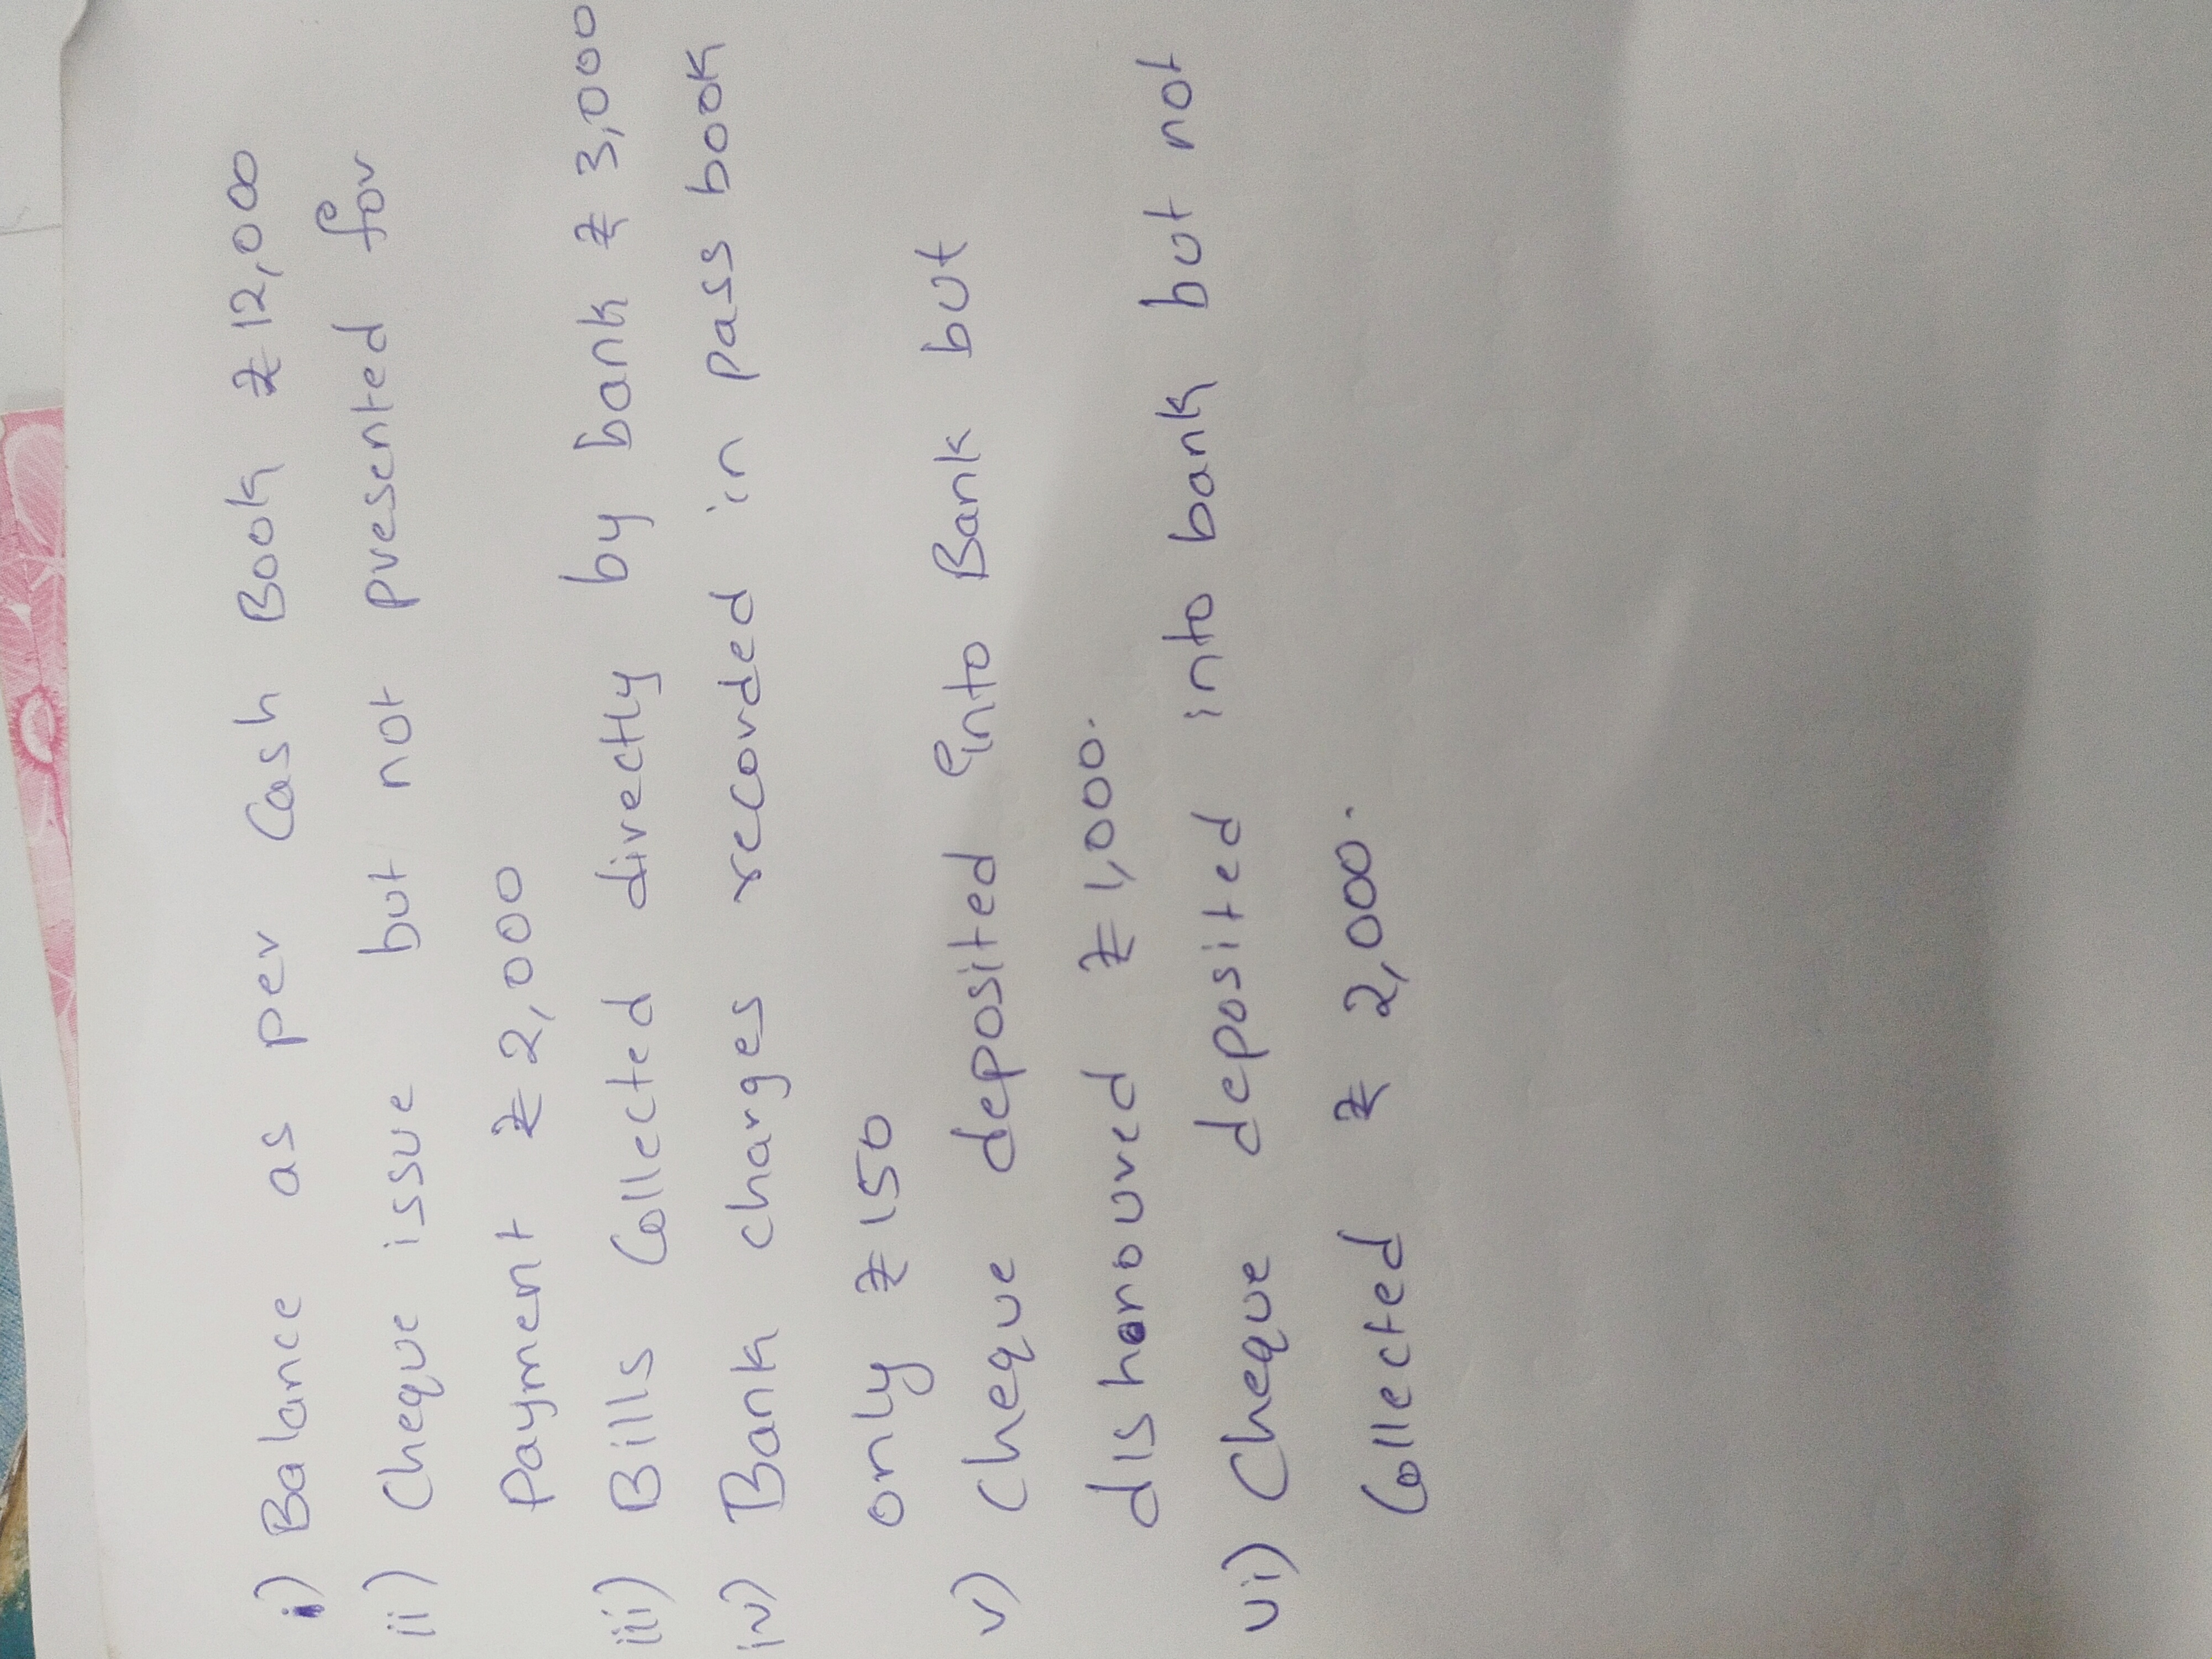 i) Balance as per Cash Book ₹ 12,000
ii) Cheque issue but not presented for
Payment ₹ 2,000
iii) Bills Collected directly by bank ₹ 3,000
iv) Bank charges recorded in pass book
only ₹ 150
v) Cheque deposited into Bank but
dishonoured ₹ 1,000.
vi) Cheque deposited into bank but not
Collected ₹ 2,000.